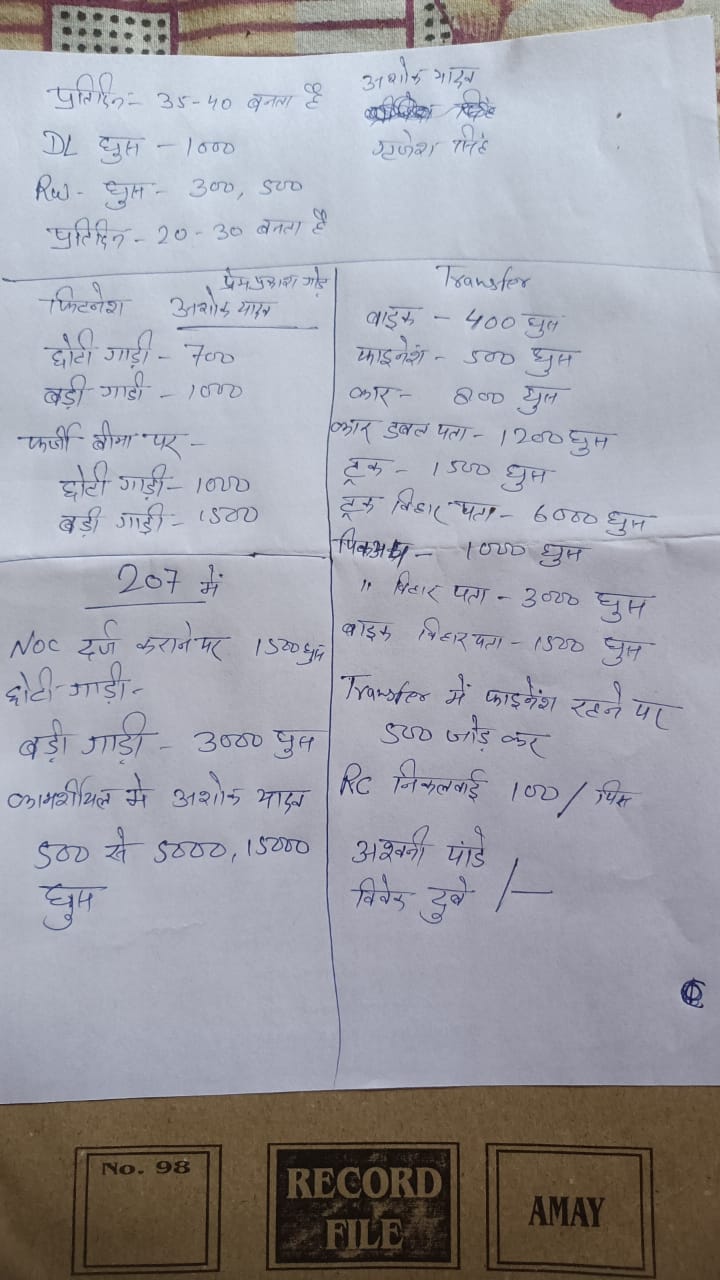 प्रतिदिन- 35-40 बनता है
DL घुस - 1000
RW - घुस - 300, 500
प्रतिदिन - 20-30 बनता है
अशोक यादव
सिंह
फिटनेश
प्रेम प्रकाश गोड़
अशोक यादव
छोटी गाड़ी - 700
बड़ी गाडी - 1000
फर्जी बीमा पर -
छोटी गाड़ी - 1000
बड़ी गाड़ी - 1500
207 में
NOC दर्ज कराने पर 1500 घुस
छोटी गाड़ी -
बड़ी गाड़ी - 3000 घुस
कामर्शीयल मे अशोक यादव
500 से 5000, 15000
घुस
Transfer
बाइक - 400 घुस
फाइनेंश - 500 घुस
कार - 800 घुस
कार डबल पता - 1200 घुस
ट्रक - 1500 घुस
ट्रक बिहार पता - 6000 घुस
पिकअप - 1000 घुस
" बिहार पता - 3000 घुस
बाइक बिहार पता - 1500 घुस
Transfer में फाइनेंश रहने पर
500 जोड़ कर
RC निकलवाई 100 / पिस
अश्वनी पांडे
विवेक दुबे /-
No. 98
RECORD
FILE
AMAY